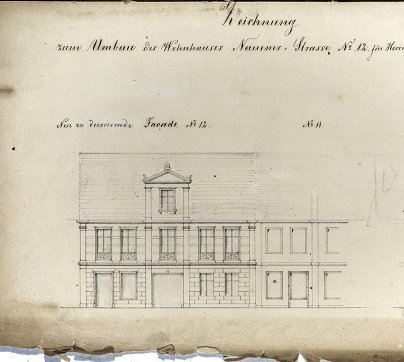 Zeichnung
zum Umbau des Wohnhauses Nauener-Strasse No 12. für Herrn
Neu zu decorierende Façade No 12.
No 11